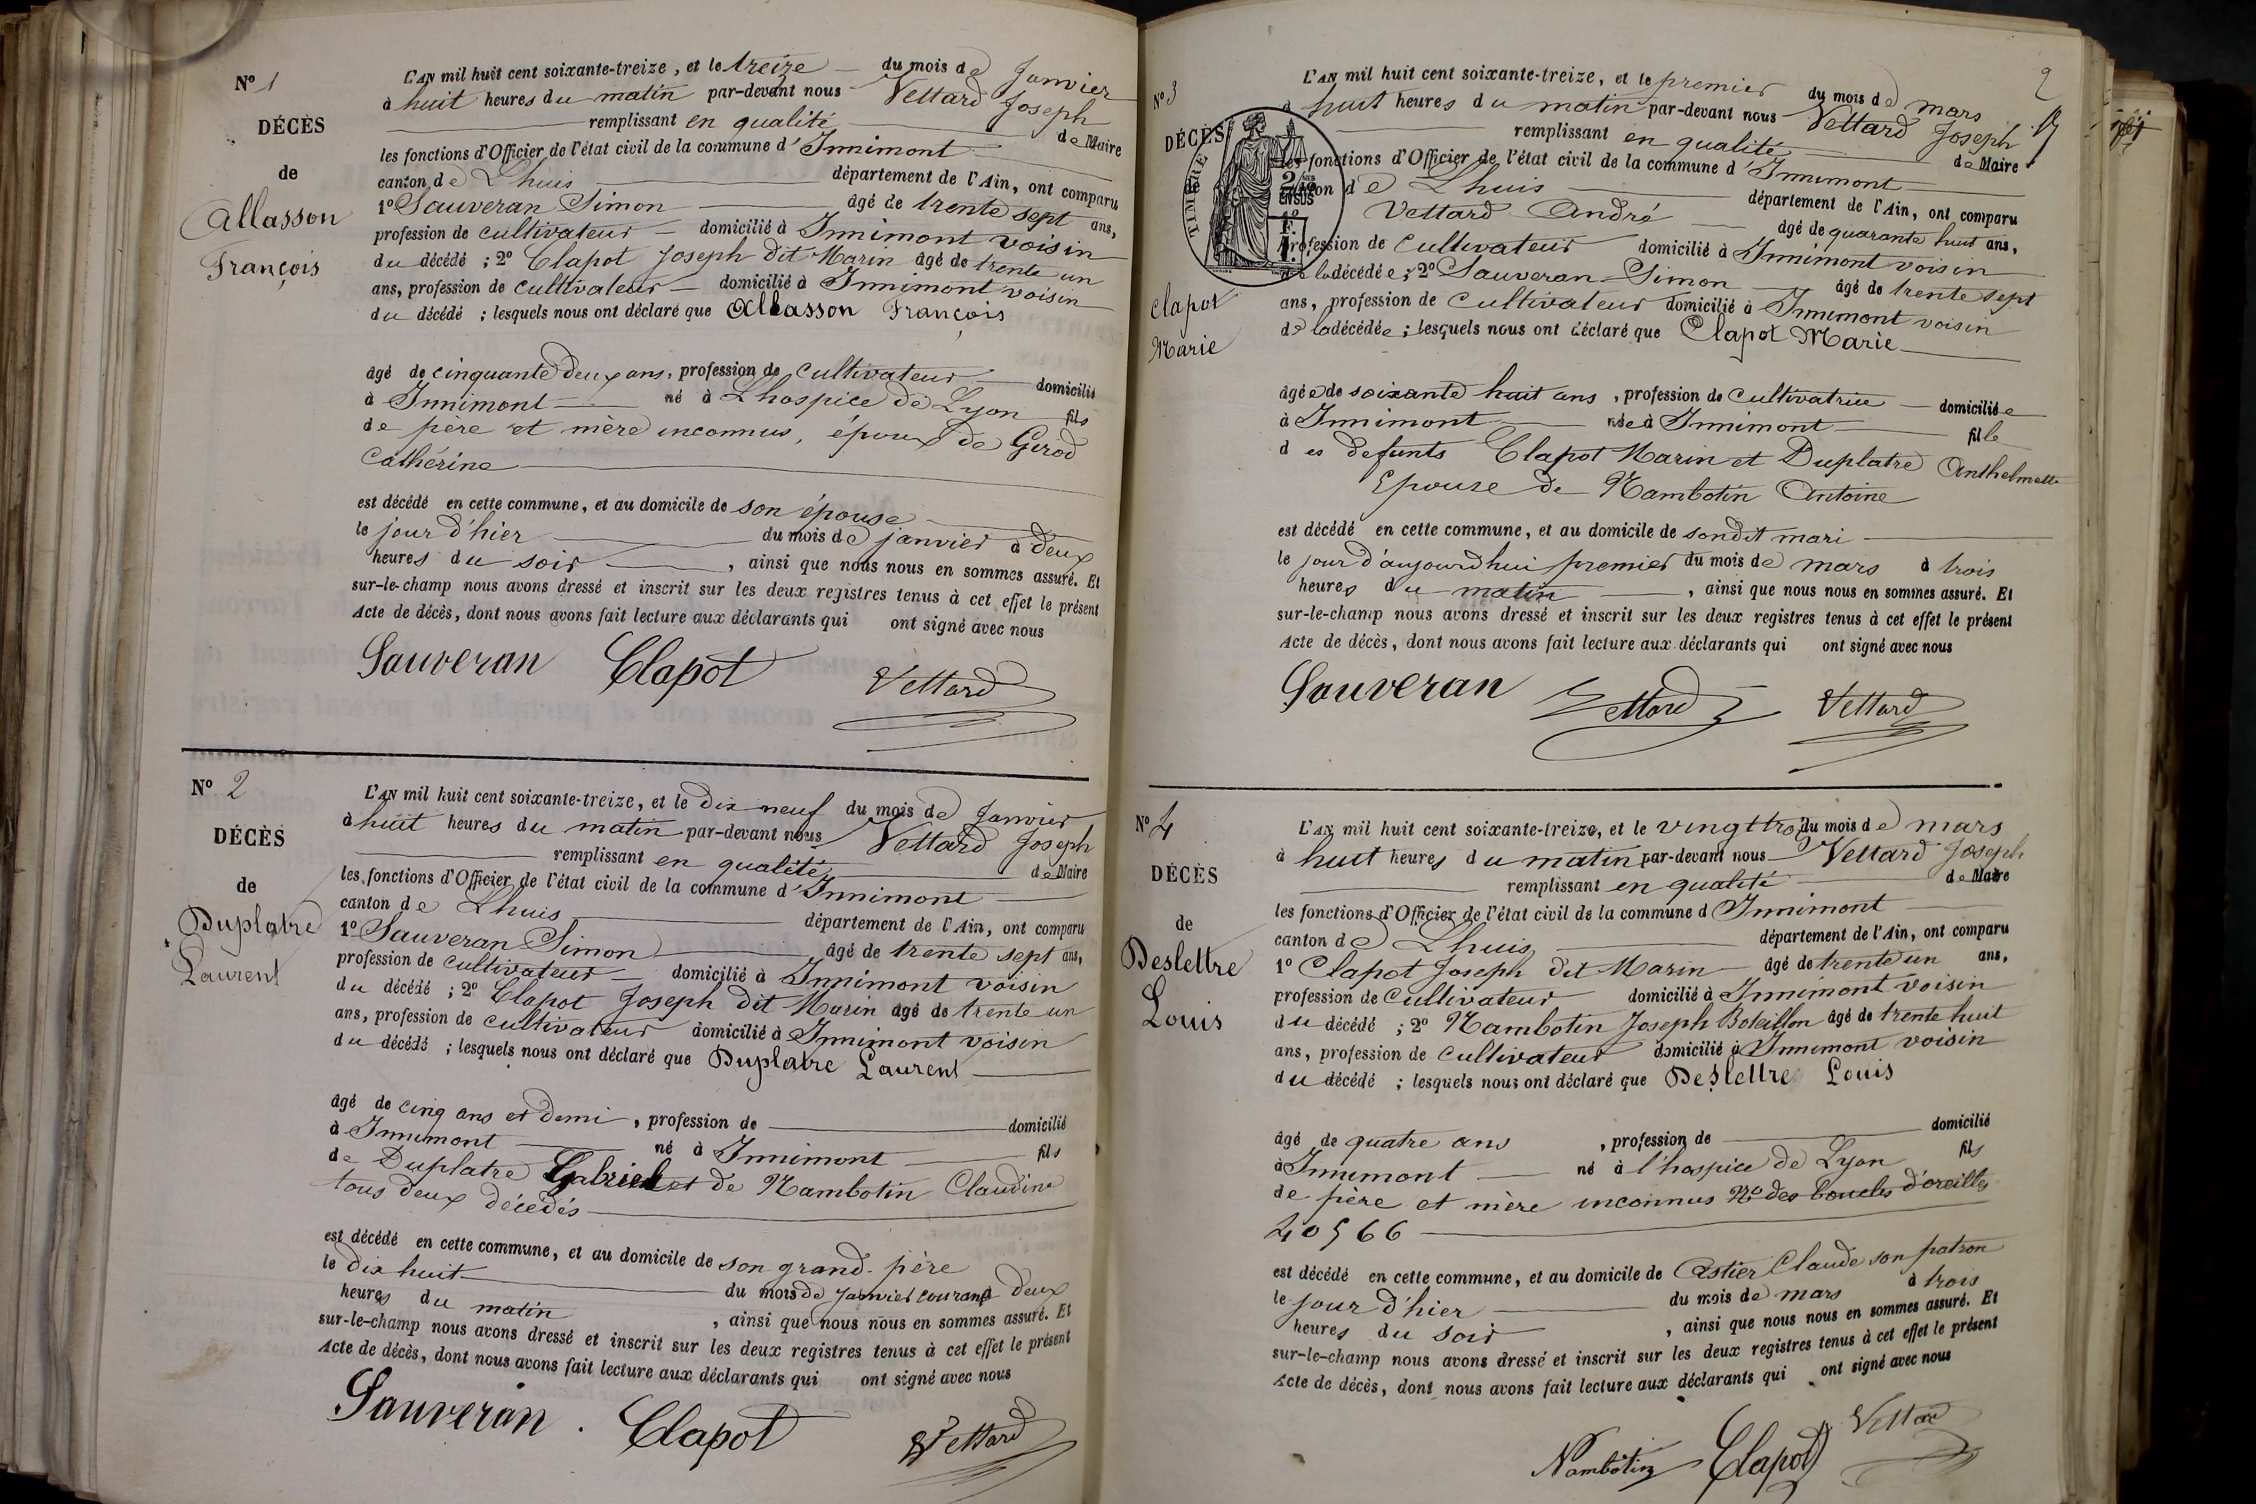 Nº 1
DÉCÈS
de
Allasson
François
L'AN mil huit cent soixante-treize, et le treize du mois de Janvier
à huit heures du matin par-devant nous Vettard Joseph
remplissant en qualité de Maire
les fonctions d'Officier de l'état civil de la commune d'Innimont
canton de Lhuis département de l'Ain, ont comparu
1º Sauveran Simon âgé de trente sept ans,
profession de cultivateur domicilié à Innimont voisin
du décédé ; 2º Clapot Joseph dit Marin âgé de trente un
ans, profession de cultivateur domicilié à Innimont voisin
du décédé ; lesquels nous ont déclaré que Allasson François
âgé de cinquante deux ans, profession de cultivateur domicilié
à Innimont né à Lhospice de Lyon fils
de père et mère inconnus, époux de Gerod
Cathérine
est décédé en cette commune, et au domicile de son épouse
le jour d'hier du mois de janvier à deux
heures du soir , ainsi que nous nous en sommes assuré. Et
sur-le-champ nous avons dressé et inscrit sur les deux registres tenus à cet effet le présent
Acte de décès, dont nous avons fait lecture aux déclarants qui ont signé avec nous
Sauveran Clapot Vettard
Nº 2
DÉCÈS
de
Duplatre
Laurent
L'AN mil huit cent soixante-treize, et le dix neuf du mois de Janvier
à huit heures du matin par-devant nous Vettard Joseph
remplissant en qualité de Maire
les fonctions d'Officier de l'état civil de la commune d'Innimont
canton de Lhuis département de l'Ain, ont comparu
1º Sauveran Simon âgé de trente sept ans,
profession de cultivateur domicilié à Innimont voisin
du décédé ; 2º Clapot Joseph dit Marin âgé de trente un
ans, profession de cultivateur domicilié à Innimont voisin
du décédé ; lesquels nous ont déclaré que Duplatre Laurent
âgé de cinq ans et demi , profession de domicilié
à Innimont né à Innimont fils
de Duplatre Gabriel et de Nambotin Claudine
tous deux décédés
est décédé en cette commune, et au domicile de son grand-père
le dix huit du mois de janvier courant à deux
heures du matin , ainsi que nous nous en sommes assuré. Et
sur-le-champ nous avons dressé et inscrit sur les deux registres tenus à cet effet le présent
Acte de décès, dont nous avons fait lecture aux déclarants qui ont signé avec nous
Sauveran . Clapot Vettard
2
Nº 3
DÉCÈS
TIMBRE
2/10 EN SUS
1 F.
Clapot
Marie
L'AN mil huit cent soixante-treize, et le premier du mois de mars
à huit heures du matin par-devant nous Vettard Joseph
remplissant en qualité de Maire
les fonctions d'Officier de l'état civil de la commune d'Innimont
canton de Lhuis département de l'Ain, ont comparu
1º Vettard André âgé de quarante huit ans,
profession de cultivateur domicilié à Innimont voisin
de la décédée ; 2º Sauveran Simon âgé de trente sept
ans, profession de cultivateur domicilié à Innimont voisin
de la décédée ; lesquels nous ont déclaré que Clapot Marie
âgée de soixante huit ans , profession de cultivatrice domiciliée
à Innimont née à Innimont fille
des defunts Clapot Marin et Duplatre Anthelmette
Epouse de Nambotin Antoine
est décédé en cette commune, et au domicile de sondit mari
le jour d'aujourdhui premier du mois de mars à trois
heures du matin , ainsi que nous nous en sommes assuré. Et
sur-le-champ nous avons dressé et inscrit sur les deux registres tenus à cet effet le présent
Acte de décès, dont nous avons fait lecture aux déclarants qui ont signé avec nous
Sauveran Vettard Vettard
Nº 4
DÉCÈS
de
Deslettre
Louis
L'AN mil huit cent soixante-treize, et le vingttrois du mois de mars
à huit heures du matin par-devant nous Vettard Joseph
remplissant en qualité de Maire
les fonctions d'Officier de l'état civil de la commune d Innimont
canton de Lhuis département de l'Ain, ont comparu
1º Clapot Joseph dit Marin âgé de trente un ans,
profession de cultivateur domicilié à Innimont voisin
du décédé ; 2º Nambotin Joseph Boteillon âgé de trente huit
ans, profession de cultivateur domicilié à Innimont voisin
du décédé ; lesquels nous ont déclaré que Deslettre Louis
âgé de quatre ans , profession de domicilié
à Innimont né à l'hospice de Lyon fils
de père et mère inconnus Nº des boucles d'oreilles
40566
est décédé en cette commune, et au domicile de Astier Claude son patron
le jour d'hier du mois de mars à trois
heures du soir , ainsi que nous nous en sommes assuré. Et
sur-le-champ nous avons dressé et inscrit sur les deux registres tenus à cet effet le présent
Acte de décès, dont nous avons fait lecture aux déclarants qui ont signé avec nous
Nambotin Clapot Vettard